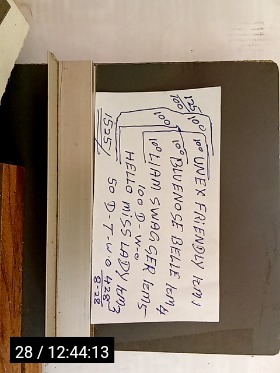 10⁰⁰ UNEX FRIENDLY 1cm1
10⁰⁰ BLUENOSE BELLE 1cm4
10⁰ LIAM SWAGGER 1cm5
100 - D - W - O
HELLO MISS LADY 1cm3
50 D - T - W - O 428
8-28
1525/
28 / 12:44:13